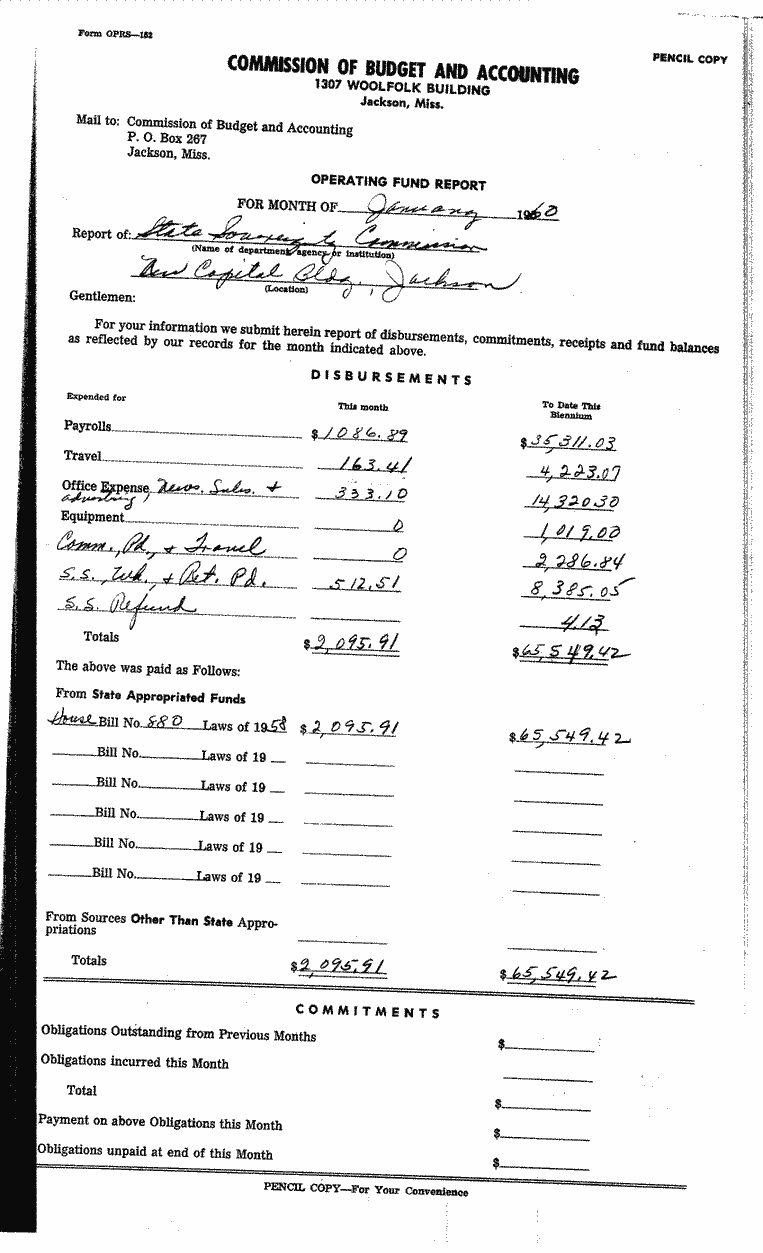 Form OPRS—152
PENCIL COPY
COMMISSION OF BUDGET AND ACCOUNTING
1307 WOOLFOLK BUILDING
Jackson, Miss.
Mail to: Commission of Budget and Accounting
P. O. Box 267
Jackson, Miss.
OPERATING FUND REPORT
FOR MONTH OF January 1960
Report of: State Sovereignty Commission
(Name of department, agency or institution)
New Capital Bldg., Jackson
(Location)
Gentlemen:
For your information we submit herein report of disbursements, commitments, receipts and fund balances
as reflected by our records for the month indicated above.
DISBURSEMENTS
Expended for This month To Date This Biennium
Payrolls $1086.89 $35,311.03
Travel 163.41 4,223.07
Office Expense, News. Subs. + 333.10 14,320.30
advertising
Equipment 0 1,019.00
Comm., Pd., + Travel 0 2,286.84
S.S., Wh., + Ret. Pd. 512.51 8,385.05
S.S. Refund 4.13
Totals $2,095.91 $65,549.42
The above was paid as Follows:
From State Appropriated Funds
House Bill No. 880 Laws of 1958 $2,095.91 $65,549.42
Bill No. Laws of 19
Bill No. Laws of 19
Bill No. Laws of 19
Bill No. Laws of 19
Bill No. Laws of 19
From Sources Other Than State Appro-
priations
Totals $2,095.91 $65,549.42
COMMITMENTS
Obligations Outstanding from Previous Months $
Obligations incurred this Month
Total $
Payment on above Obligations this Month $
Obligations unpaid at end of this Month $
PENCIL COPY—For Your Convenience